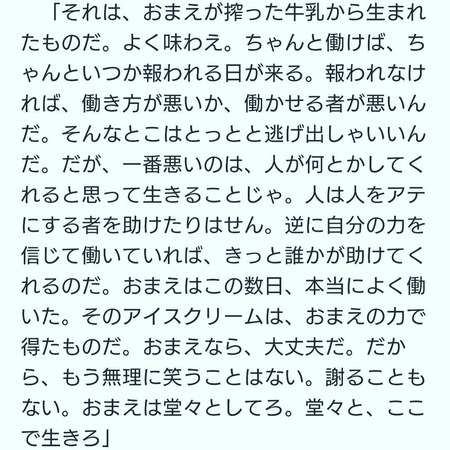 「それは、おまえが搾った牛乳から生まれ
たものだ。よく味わえ。ちゃんと働けば、ち
ゃんといつか報われる日が来る。報われなけ
れば、働き方が悪いか、働かせる者が悪いん
だ。そんなとこはとっとと逃げ出しゃいいん
だ。だが、一番悪いのは、人が何とかしてく
れると思って生きることじゃ。人は人をアテ
にする者を助けたりはせん。逆に自分の力を
信じて働いていれば、きっと誰かが助けてく
れるのだ。おまえはこの数日、本当によく働
いた。そのアイスクリームは、おまえの力で
得たものだ。おまえなら、大丈夫だ。だか
ら、もう無理に笑うことはない。謝ることも
ない。おまえは堂々としてろ。堂々と、ここ
で生きろ」